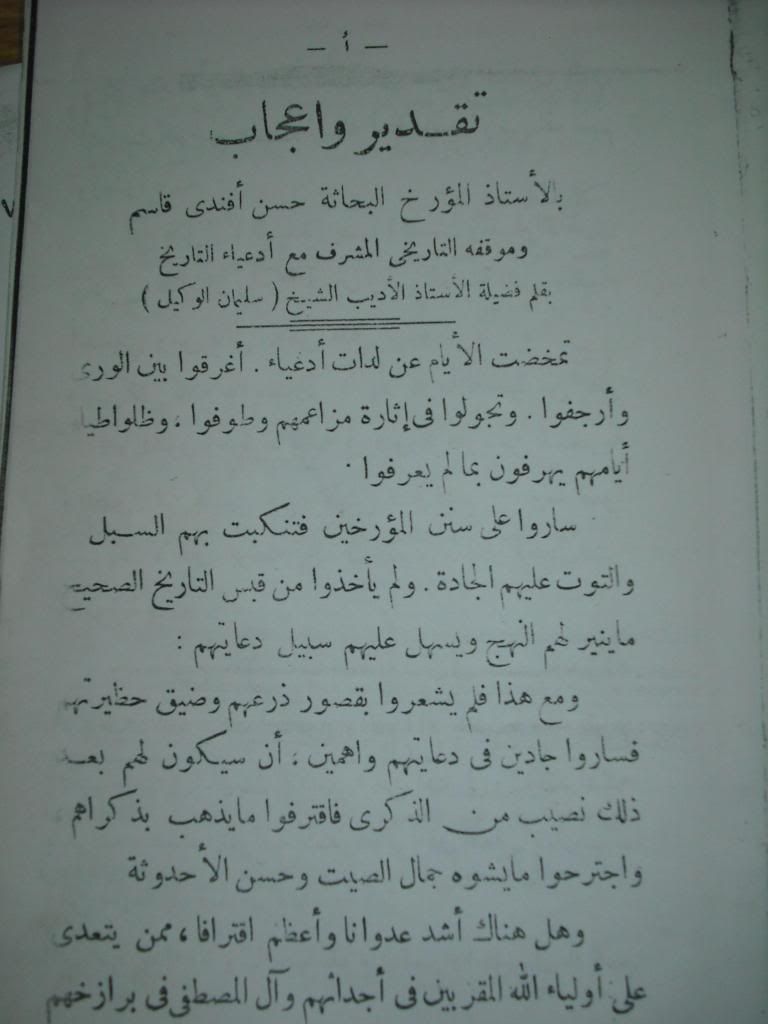 — أ —
تقدير واعجاب
بالأستاذ المؤرخ البحاثة حسن أفندى قاسم
وموقفه التاريخى المشرف مع أدعياء التاريخ
بقلم فضيلة الأستاذ الأديب الشيخ ( سليمان الوكيل )
تمخضت الأيام عن لدات أدعياء . أغرقوا بين الورى
وأرجفوا . وتجولوا فى إثارة مزاعمهم وطوفوا ، وظلوا
أيامهم يهرفون بما لم يعرفوا .
ساروا على سنن المؤرخين فتنكبت بهم السبل
والتوت عليهم الجادة . ولم يأخذوا من قبس التاريخ الصحيح
ماينير لهم النهج ويسهل عليهم سبيل دعايتهم :
ومع هذا فلم يشعروا بقصور ذرعهم وضيق حظيرتهم
فساروا جادين فى دعايتهم واهمين ، أن سيكون لهم بعد
ذلك نصيب من الذكرى فاقترفوا مايذهب بذكراهم
واجترحوا مايشوه جمال الصيت وحسن الأحدوثة
وهل هناك أشد عدوانا وأعظم اقترافا ، ممن يتعدى
على أولياء الله المقربين فى أجداثهم وآل المصطفى فى برازخهم